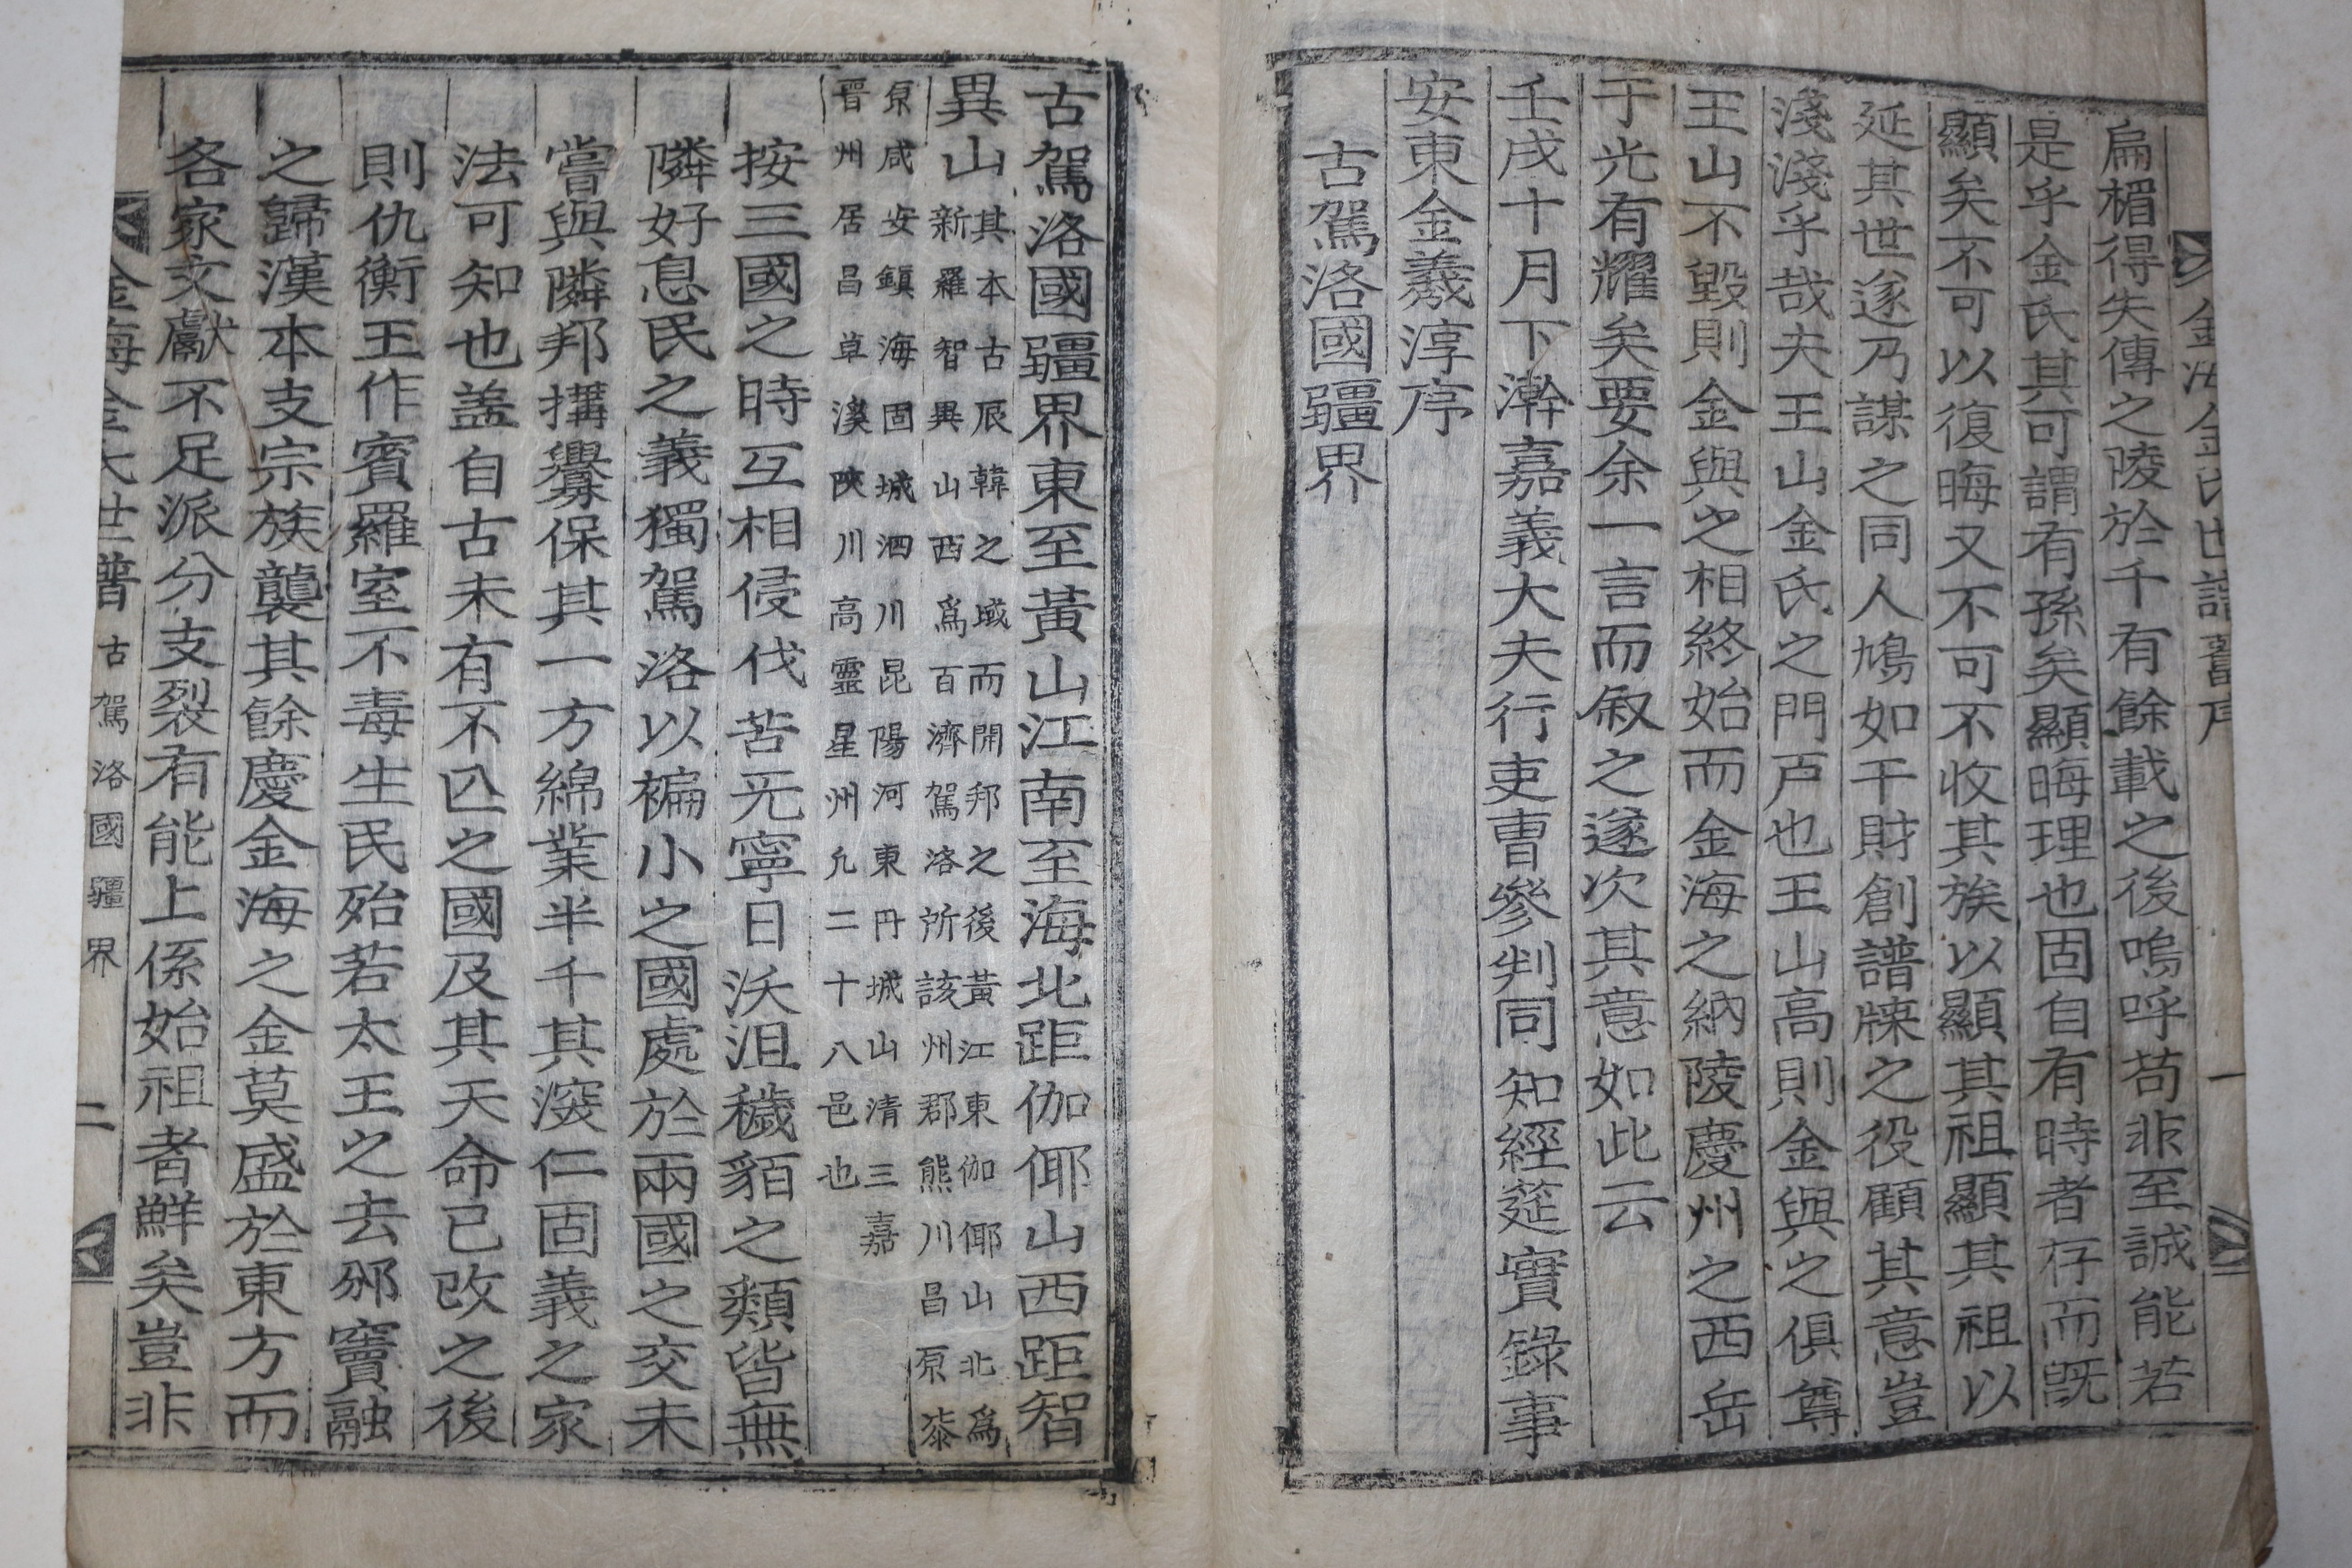 金海金氏世譜 舊序 一
扁楣得失傳之陵於千有餘載之後嗚呼苟非至誠能若
是乎金氏其可謂有孫矣顯晦理也固自有時者存而旣
顯矣不可以復晦又不可不收其族以顯其祖顯其祖以
延其世遂乃謀之同人鳩如干財創譜牒之役顧其意豈
淺淺乎哉夫王山金氏之門戶也王山高則金與之俱尊
王山不毀則金與之相終始而金海之納陵慶州之西岳
于光有耀矣要余一言而叙之遂次其意如此云
壬戌十月下澣嘉義大夫行吏曺參判同知經莚實錄事
安東金羲淳序
古駕洛國疆界
古駕洛國疆界東至黃山江南至海北距伽倻山西距智
異山
其本古辰韓之域而開邦之後黃江東伽倻山北爲
新羅智異山西爲百濟駕洛所該州郡熊川昌原漆
原咸安鎭海固城泗川昆陽河東丹城山淸三嘉
晋州居昌草溪陜川高靈星州凡二十八邑也
按三國之時互相侵伐苦无寧日沃沮穢貊之類皆無
隣好息民之義獨駕洛以褊小之國處於兩國之交未
嘗與隣邦搆釁保其一方綿業半千其深仁固義之家
法可知也盖自古未有不亾之國及其天命已改之後
則仇衡王作賓羅室不毒生民殆若太王之去邠竇融
之歸漢本支宗族襲其餘慶金海之金莫盛於東方而
各家文獻不足派分支裂有能上係始祖者鮮矣豈非
金海金氏世譜 古駕洛國疆界 二